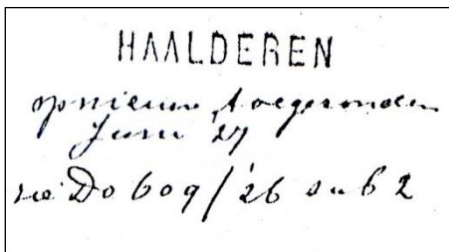 HAALDEREN
opnieuw toegezonden
Juni 27
zie Do 609/'26 sub 2